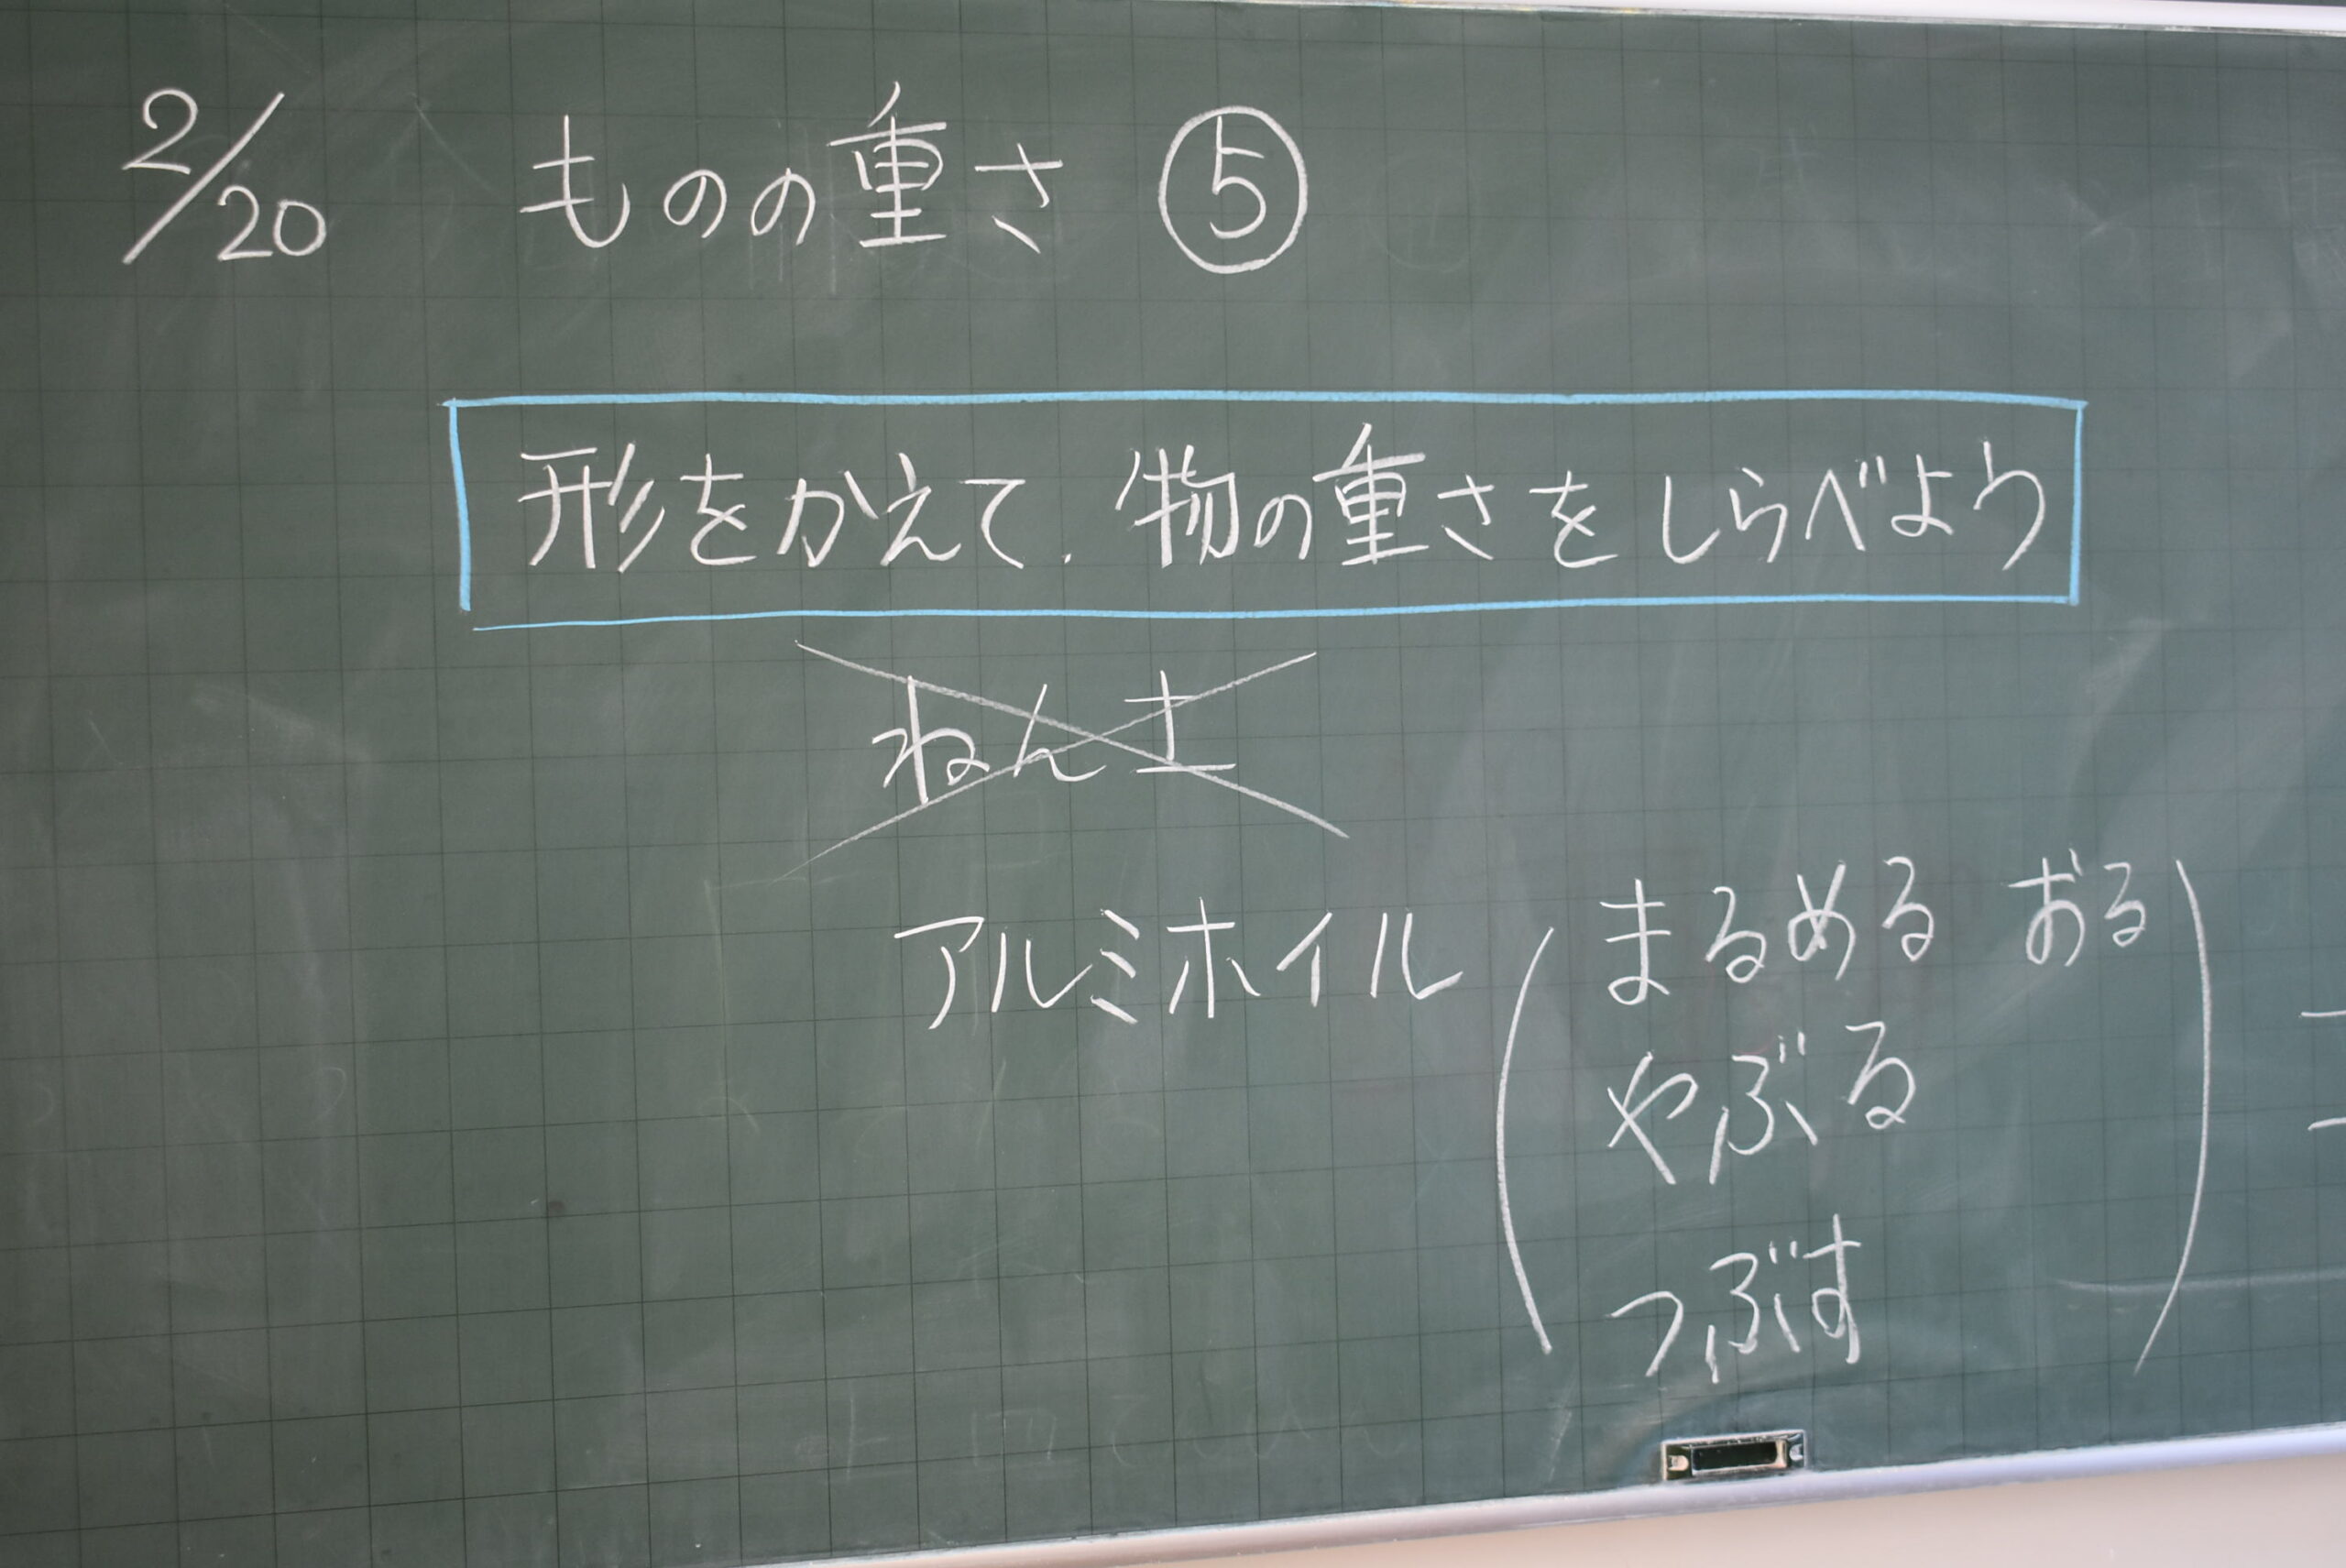 2/20 ものの重さ ⑤
形をかえて、物の重さをしらべよう
ねん土
アルミホイル ( まるめる おる
やぶる
つぶす )